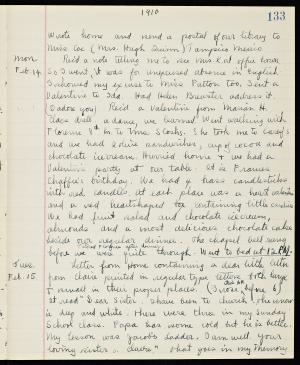 1910
133
Wrote home and send a postal of our library to
Miss Coe (Mrs. Hugh Quinn) Tampico Mexico
Mon
Feb. 14.
Rec'd a note telling me to see Mrs. K. at office
So I went, it was for unexcused absence in English
I showed my excuse to Miss Patton too. Sent a
Valentine to Ada. Had Helen Brewster address it.
Rec'd a Valentine from Marian H.
Class well, a dance, we learned. Went walking with
Florence V. to Mrs. She took me to
and we had sandwiches, cup of cocoa and
chocolate icecream. Hurried home & we had a
Valentine party at our table. It is Frances
Chaffee's birthday. We had glass candlesticks
with red candles. At each place was a heart
and a red heartshaped box containing little candies
We had fruit salad and chocolate icecream,
almonds and a most delicious chocolate cake
beside our regular dinner. The chapel bell rang
before we were quite through. Went to bed at 12 P.M.
Tues.
Feb. 15.
Letter from home containing a dear little letter
from Clara printed in regular type letters both large
& small in their proper places.
It read "Dear Sister. I have been to church. The snow
is deep and white. There were three in my Sunday
School class. Papa has some cold but he is better.
My lesson was Jacob's Ladder. I am well. Your
loving sister, Clara" That goes in my Memory